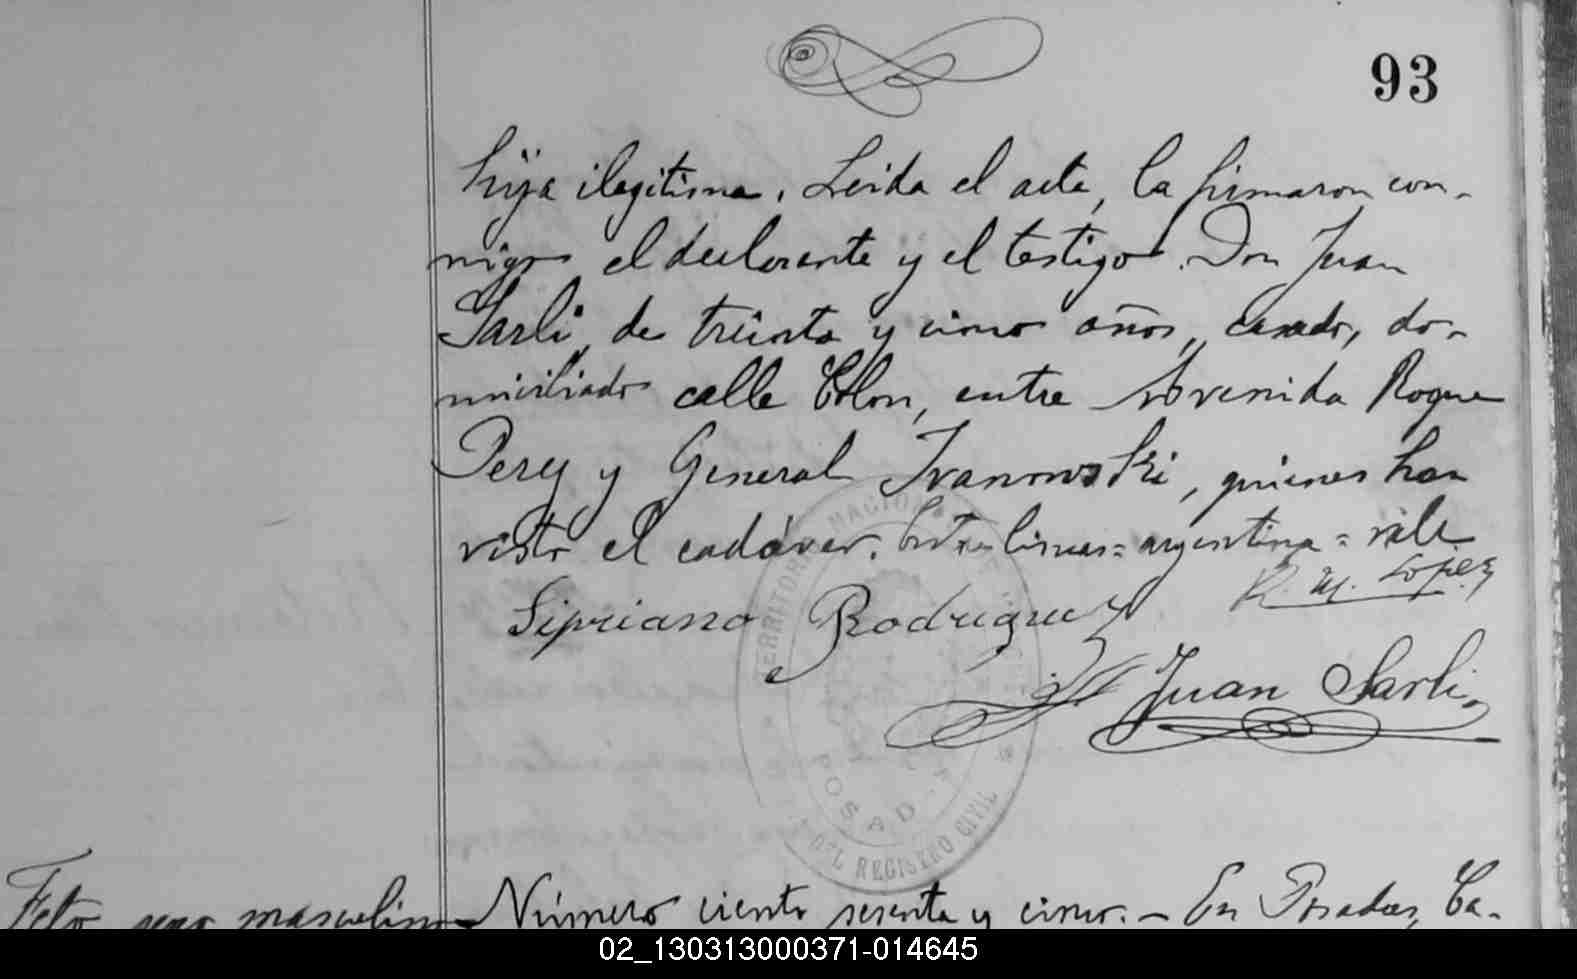 93
hija ilegitima. Leida el acta, la firmaron con-
migo el declarante y el testigo. Don Juan
Sarli, de treinta y cinco años, casado, do-
miciliado calle Colon, entre Avenida Roque
Perez y General Ivanowski, quienes han
visto el cadáver. Entre lineas = argentina = vale
R. M. Lopez
Sipriano Rodriguez
Juan Sarli
TERRITORIO NACIONAL DE
POSADAS
DEL REGISTRO CIVIL
Feto sexo masculino
Número ciento sesenta y cinco. - En Posadas, Ca-
02_130313000371-014645